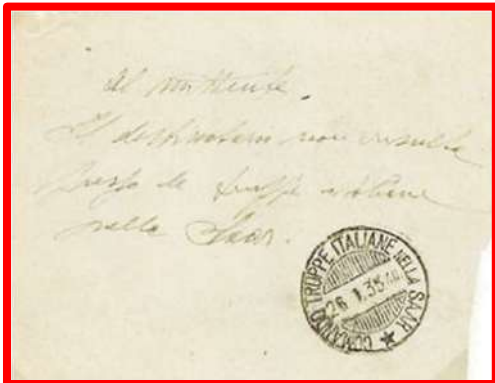 Al mittente.
Il destinatario non risulta
presso le truppe italiane
nella Saar.
COMANDO TRUPPE ITALIANE NELLA SAAR
26 1.35